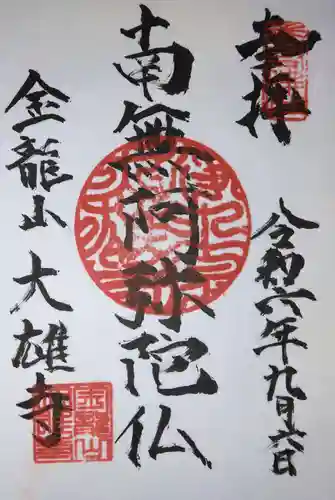 奉拝
令和六年九月六日
南無阿弥陀仏
金龍山大雄寺